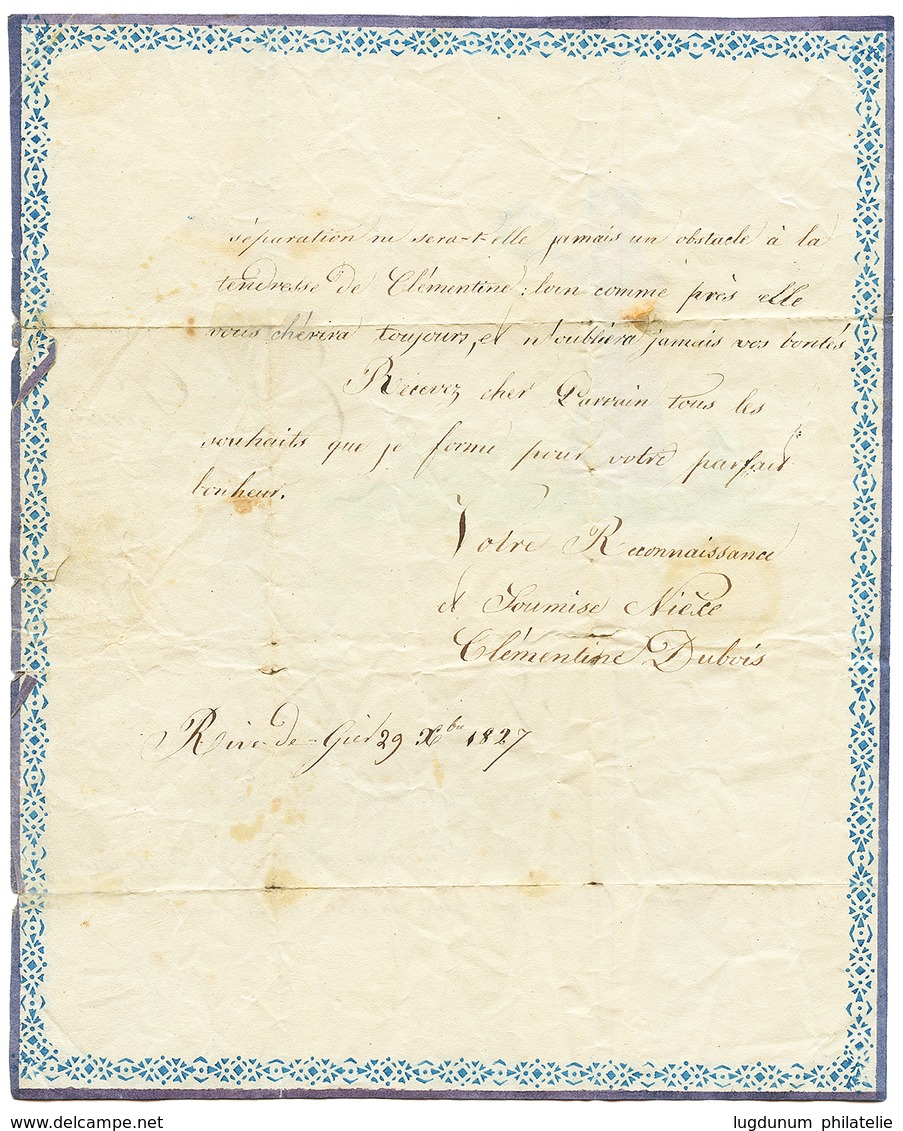 séparation ne sera-t-elle jamais un obstacle à la
tendresse de Clémentine : loin comme près elle
vous chérira toujours, et n'oubliera jamais vos bontés
Recevez cher Parrain tous les
souhaits que je forme pour votre parfait
bonheur.
Votre Reconnaissance
et Soumise Nièce
Clémentine Dubois
Rive-de-Gier 29 Xbre 1827
www.delcampe.net
lugdunum philatelie